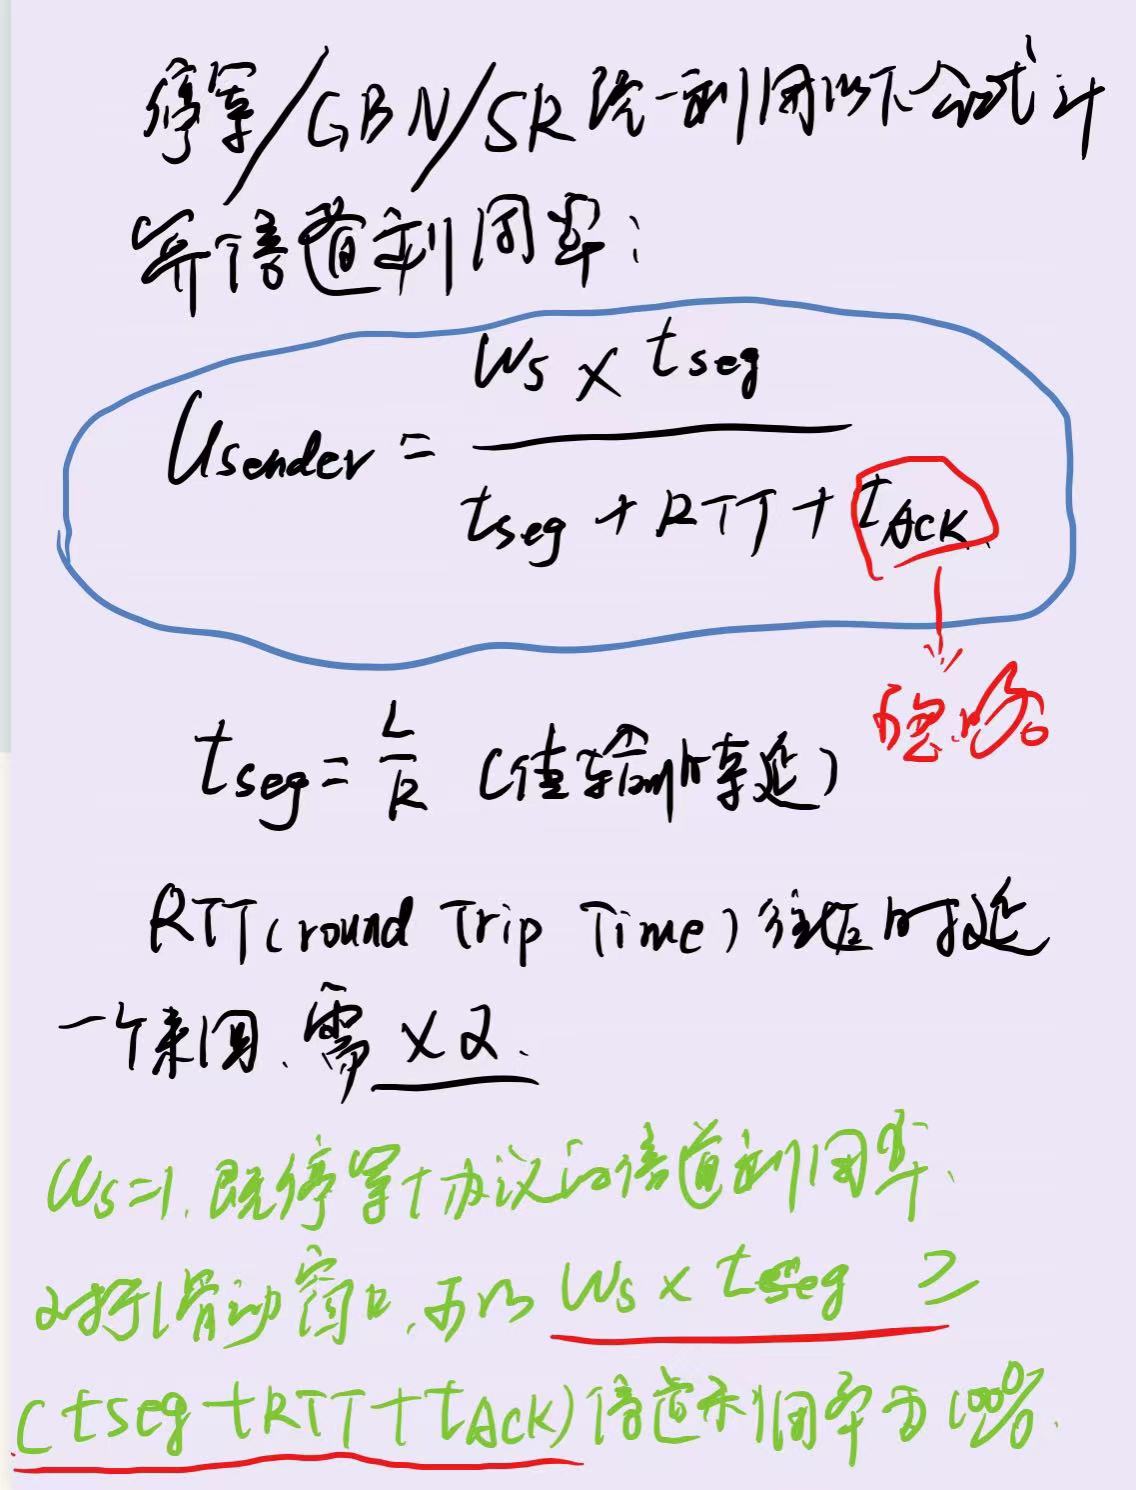 停等/GBN/SR统一利用以下公式计
算信道利用率:
Usender = Ws × tseg / tseg + RTT + tACK
可忽略
tseg = L/R (传输时延)
RTT(round Trip Time)往返时延
一个来回、需×2.
Ws=1.既停等协议的信道利用率、
对于滑动窗口,可以Ws × tseg ≥
(tseg + RTT + tACK)信道利用率为100%.